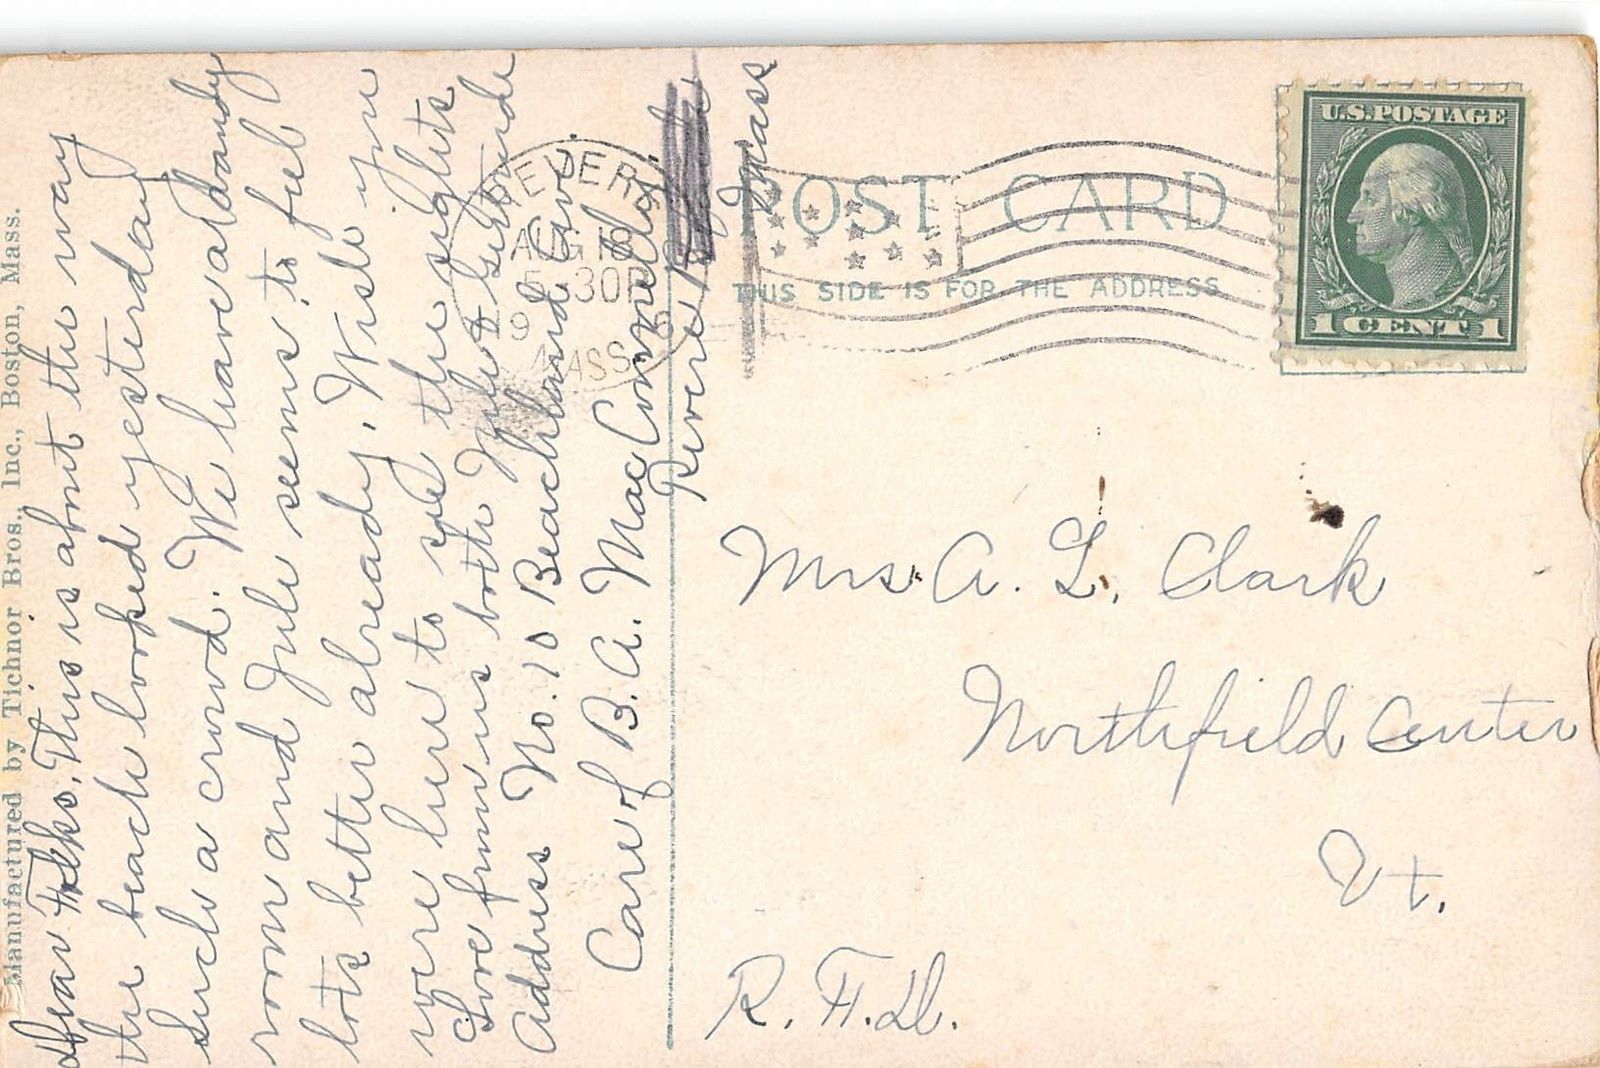 Manufactured by Tichnor Bros., Inc., Boston, Mass.
Dear Folks. This is about the way
the beach looked yesterday
such a crowd. We have a dandy
room and Jule seems to feel
lots better already. Wish you
were here to see the sights
Love from us both Jule & Gertrude
Address No. 10 Beachland Ave
Care of B. A. MacConnell
Revere Beach
Mass
REVERE
AUG 18
5-30P
19
MASS.
POST CARD
THIS SIDE IS FOR THE ADDRESS
U.S. POSTAGE
1 CENT 1
Mrs. A. L. Clark
Northfield Center
Vt.
R. F. D.